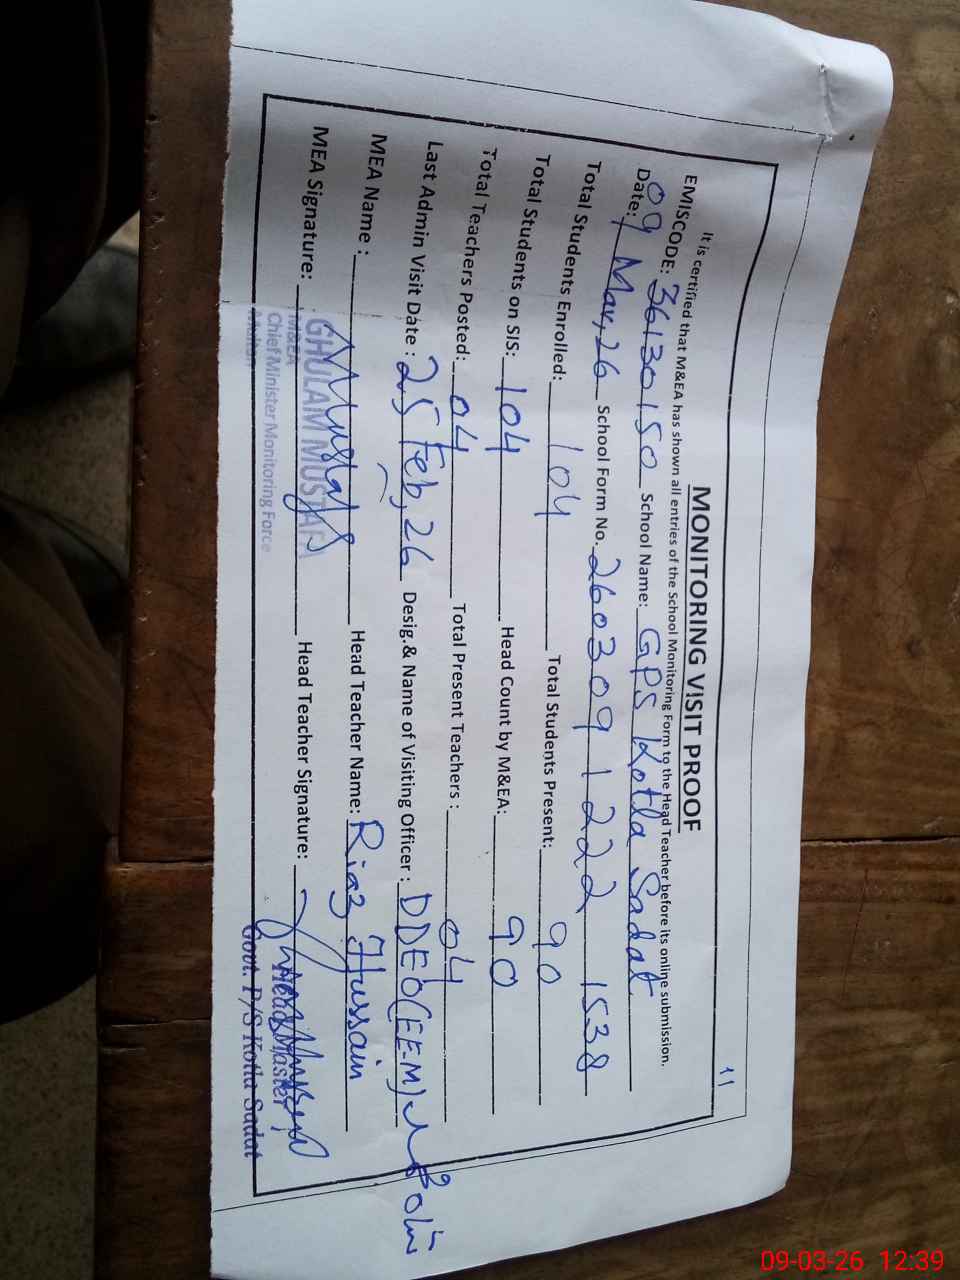 11
MONITORING VISIT PROOF
It is certified that M&EA has shown all entries of the School Monitoring Form to the Head Teacher before its online submission.
EMISCODE: 36130150 School Name: GPS Kotla Sadat
Date: 09 Mar, 26 School Form No. 2603091222 1538
Total Students Enrolled: 104 Total Students Present: 90
Total Students on SIS: 104 Head Count by M&EA: 90
Total Teachers Posted: 04 Total Present Teachers : 04
Last Admin Visit Date : 25 Feb, 26 Desig.& Name of Visiting Officer : DDEO(EE-M)
MEA Name : Head Teacher Name: Riaz Hussain
MEA Signature: Head Teacher Signature:
GHULAM MUSTAFA
M&EA
Chief Minister Monitoring Force
Multan
Head Master
Govt. P/S Kotla Sadat
09-03-26 12:39